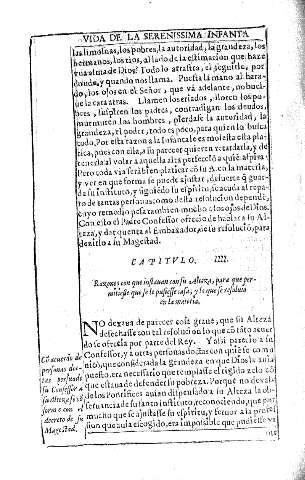 VIDA DE LA SERENISSIMA INFANTA
las limosnas, los pobres, la autoridad, la grandeza, los
hermanos, los tios, al lado de la estimacion que haze
tu alma de Dios? Todo lo arrastra, el seguirle, por
donde, y quando nos llama. Puesta la mano al hara-
do, los ojos en el Señor, que và adelante, no buel-
ue la cara atras. Llamen los criados, lloren los pa-
bres, suspiren los padres, contradigan los deudos,
murmuren los hombres, pierdase la autoridad, la
grandeza, el poder, todo es poco, para quien lo busca
todo. Por esta razon a la Infanta le es molesta esta pla-
tica, pues con ella, a su parecer quieren retardarla, y de-
tenerla al volar a aquella alta perfecciõ a que aspira.
Pero toda via
y ver en que forma se puede ajustar,
de su instituto, y siguiẽdo su espiritu, se acuda al repa-
ro de tantas personas, como desta resolucion depende,
en yo remedio pesa tambien mucho a los ojos de Dios.
Con esto el Padre Confessor ofrecio de hablar a su Al-
teza, y dar quenta al Embaxador, de su resolucion, para
dezirlo a su Magestad.
CAPITVLO. IIII.
Razones con que instauan con su Alteza, para que per-
mitiesse que se le pusiesse casa, y lo que se resoluio
en la materia.
NO dexaua de parecer cosa graue, que su Alteza
desechasse con tal resolucion lo que cõ tãto acuer-
do se ofrecia por parte del Rey. Y assi parecio a su
Confessor, y a otras personas doctas con quiẽ se comu-
nicò, que considerada la grandeza en que Dios le auia
puesto, era necessario que templasse el rigido zelo cõ
que estaua de defender su pobreza. Porque no de valde
los Pontifices auian dispensado a su Alteza la ob-
seruancia de su santo instituto, reconociendo, que por
mucho que se ajustasse su espiritu, y feruor a la profes-
sion que auia escogido, era impossible que
Cõ acuerdo de
personas doc-
tas
su Confessor a
su Alteza
forme con el
decreto de su
Magestad.